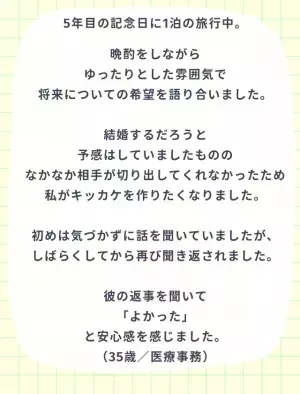 5年目の記念日に1泊の旅行中。
晩酌をしながら
ゆったりとした雰囲気で
将来についての希望を語り合いました。
結婚するだろうと
予感はしていましたものの
なかなか相手が切り出してくれなかったため
私がキッカケを作りたくなりました。
初めは気づかずに話を聞いていましたが、
しばらくしてから再び聞き返されました。
彼の返事を聞いて
「よかった」
と安心感を感じました。
（35歳／医療事務）